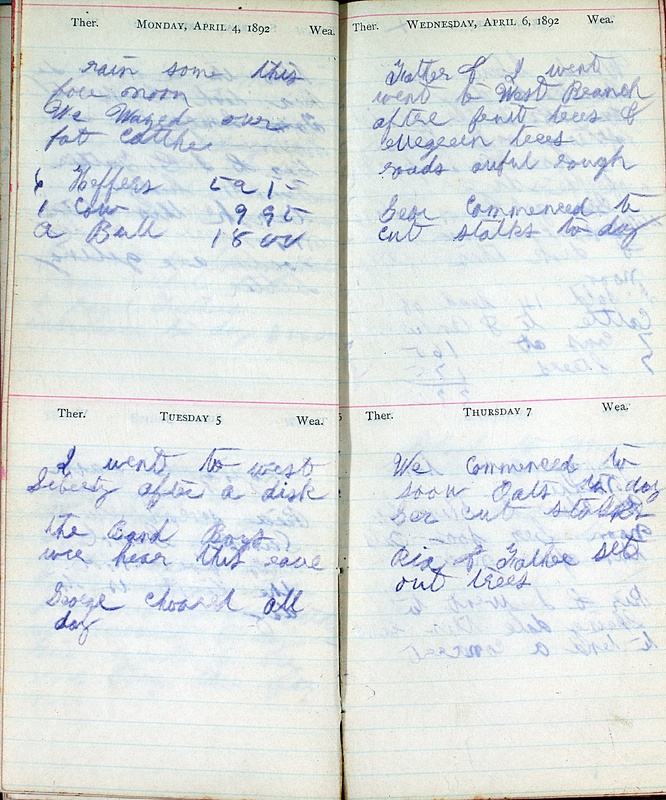 Ther. MONDAY, APRIL 4, 1892 Wea.
rain some this
fore moon
We Wayed over
fat Cattle
6 Heffers 5 9 1 5
1 Cow 9 9 5
a Bull 1 5 00
Ther. TUESDAY 5 Wea.
I went to west
Liberty after a disk
the Band Boys
wre hear this eave
George choared all
day
Ther. WEDNESDAY, APRIL 6, 1892 Wea.
Father & I went
went to West Branch
after fruit trees &
evegrein trees
roads awful rough
Geor Commenced to
cut stalks to day
Ther. THURSDAY 7 Wea.
We Commenced to
soow Oats to day
Ger cut stalks
Rix & Father sets
out trees